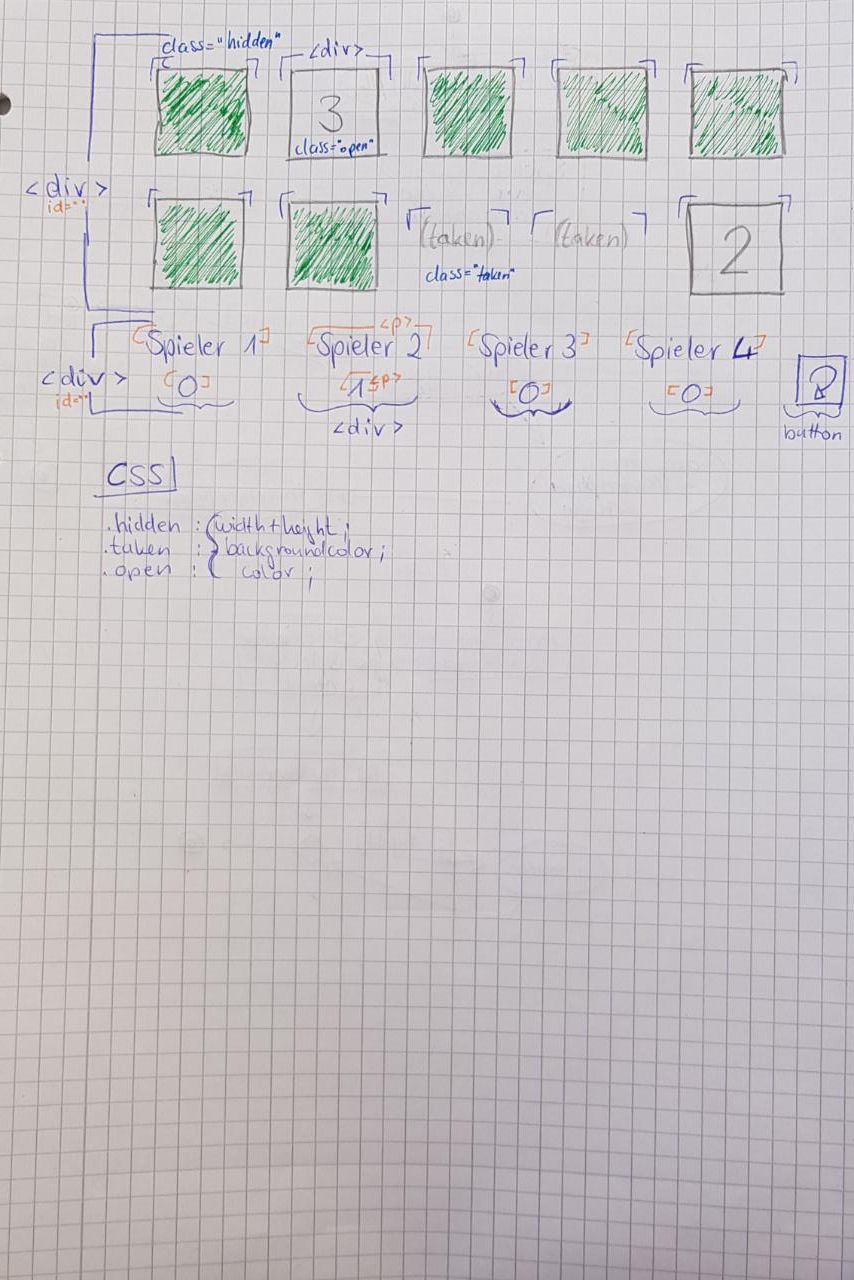 class="hidden"
<div>
3
class="open"
<div>
id=""
(taken)
(taken)
class="taken"
2
<p>
Spieler 1
Spieler 2
Spieler 3
Spieler 4
<div>
id=""
0
1
<p>
0
0
<div>
button
CSS
.hidden : width+height;
.taken : backgroundcolor;
.open : color;